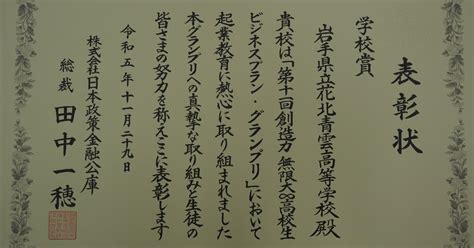 表彰状
学校賞
岩手県立花北青雲高等学校殿
貴校は「第十一回創造力無限大∞高校生
ビジネスプラン・グランプリ」において
起業教育に熱心に取り組まれました
本グランプリへの真摯な取り組みと生徒の
皆さまの努力を称えここに表彰します
令和五年十一月二十九日
株式会社日本政策金融公庫
総裁 田中一穂